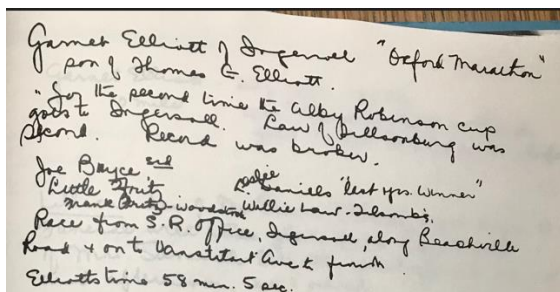 Garnet Elliott of Ingersoll "Oxford Marathon"
son of Thomas G. Elliott.
"For the second time the Alby Robinson cup
goes to Ingersoll. Law of Tillsonburg was
second. Record was broken.
Joe Bayce 3rd
Little Leslie Daniels "last yrs. winner"
Frank - Woodstock Willie Law -
Race from S. R. office, Ingersoll, along Beachville
Road & on to Vansittart Ave to finish
Elliotts time 58 min. 5 sec.